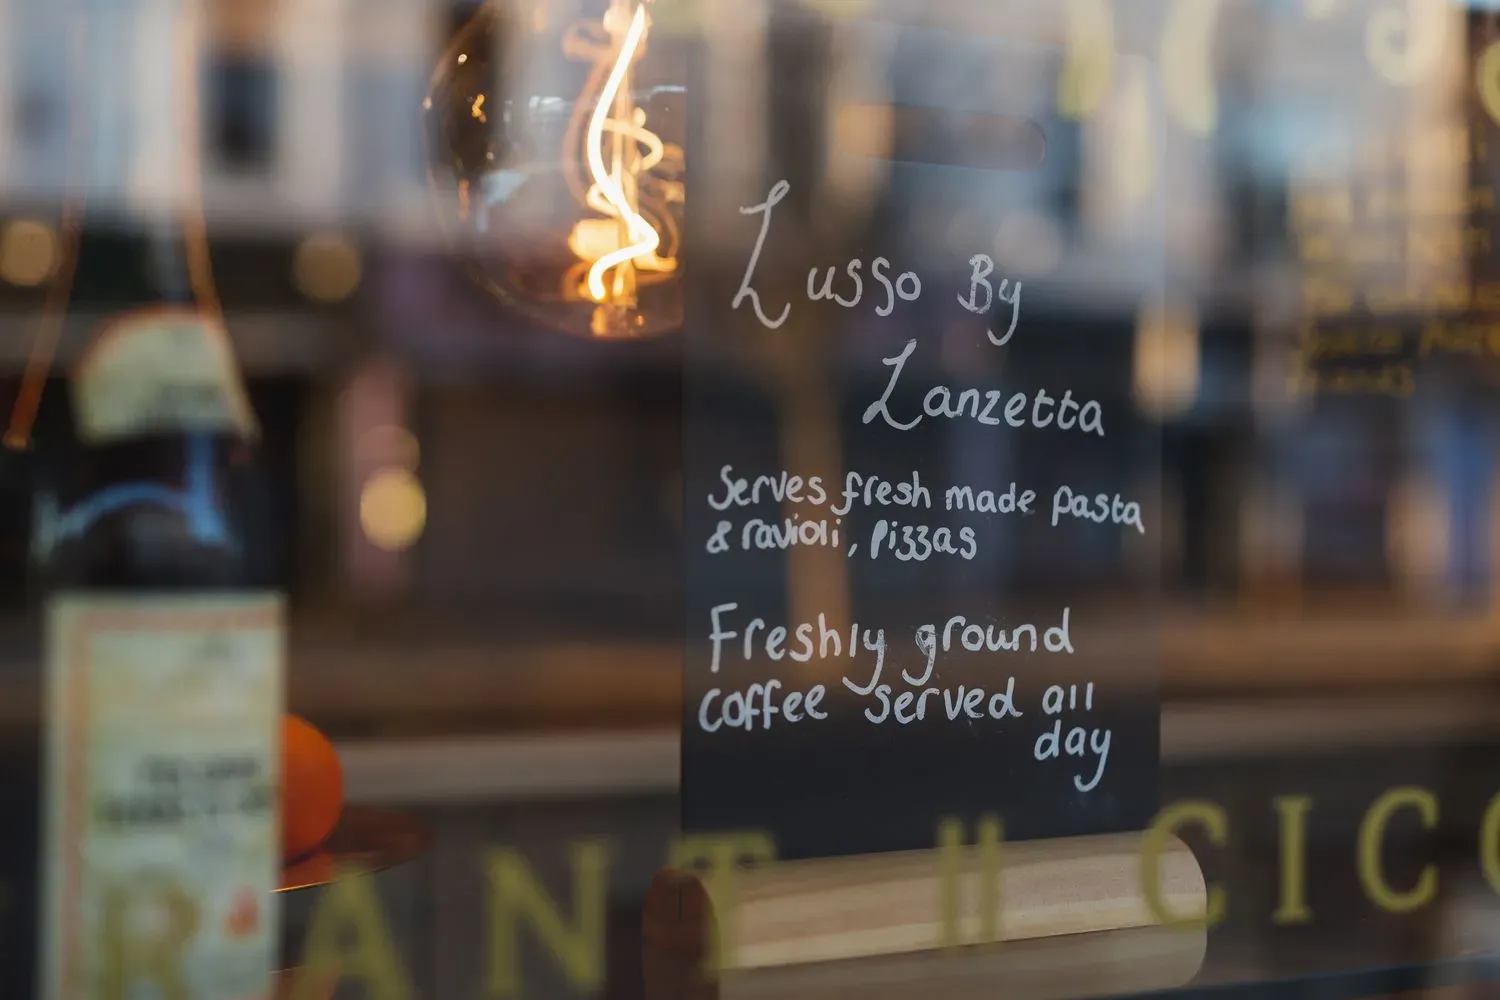 Lusso By
Lanzetta
Serves fresh made pasta
& ravioli, pizzas
Freshly ground
coffee served all
day
RANT || CICC